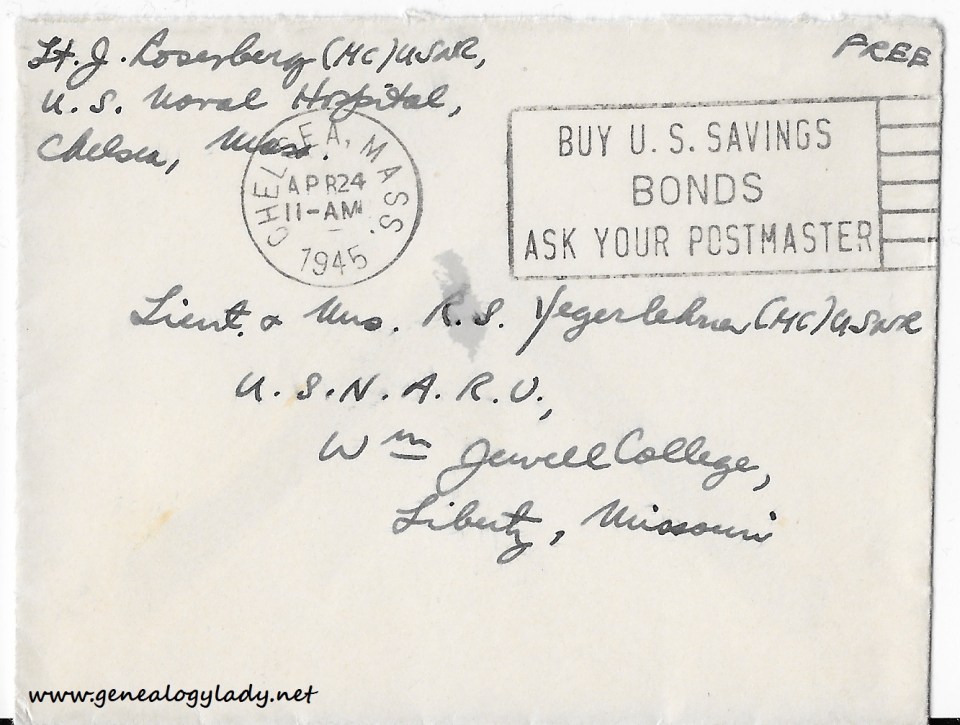 Lt. J. Roserberg (MC) USNR,
U. S. Naval Hospital,
Chelsea, Mass.
FREE
CHELSEA, MASS.
APR 24
11-AM
1945
BUY U. S. SAVINGS
BONDS
ASK YOUR POSTMASTER
Lieut. & Mrs. R. S. Yegerlehner (MC) USNR
U. S. N. A. R. U.,
Wm Jewell College,
Liberty, Missouri
www.genealogylady.net